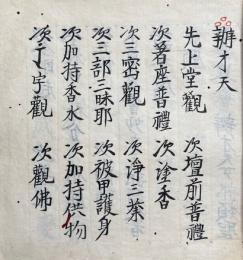 辨才天
先上堂觀　次壇前普禮
次著座普禮　次塗香
次三密觀　次淨三業
次三部三昧耶　次被甲護身
次加持香水　次加持供物
次字觀　次觀佛